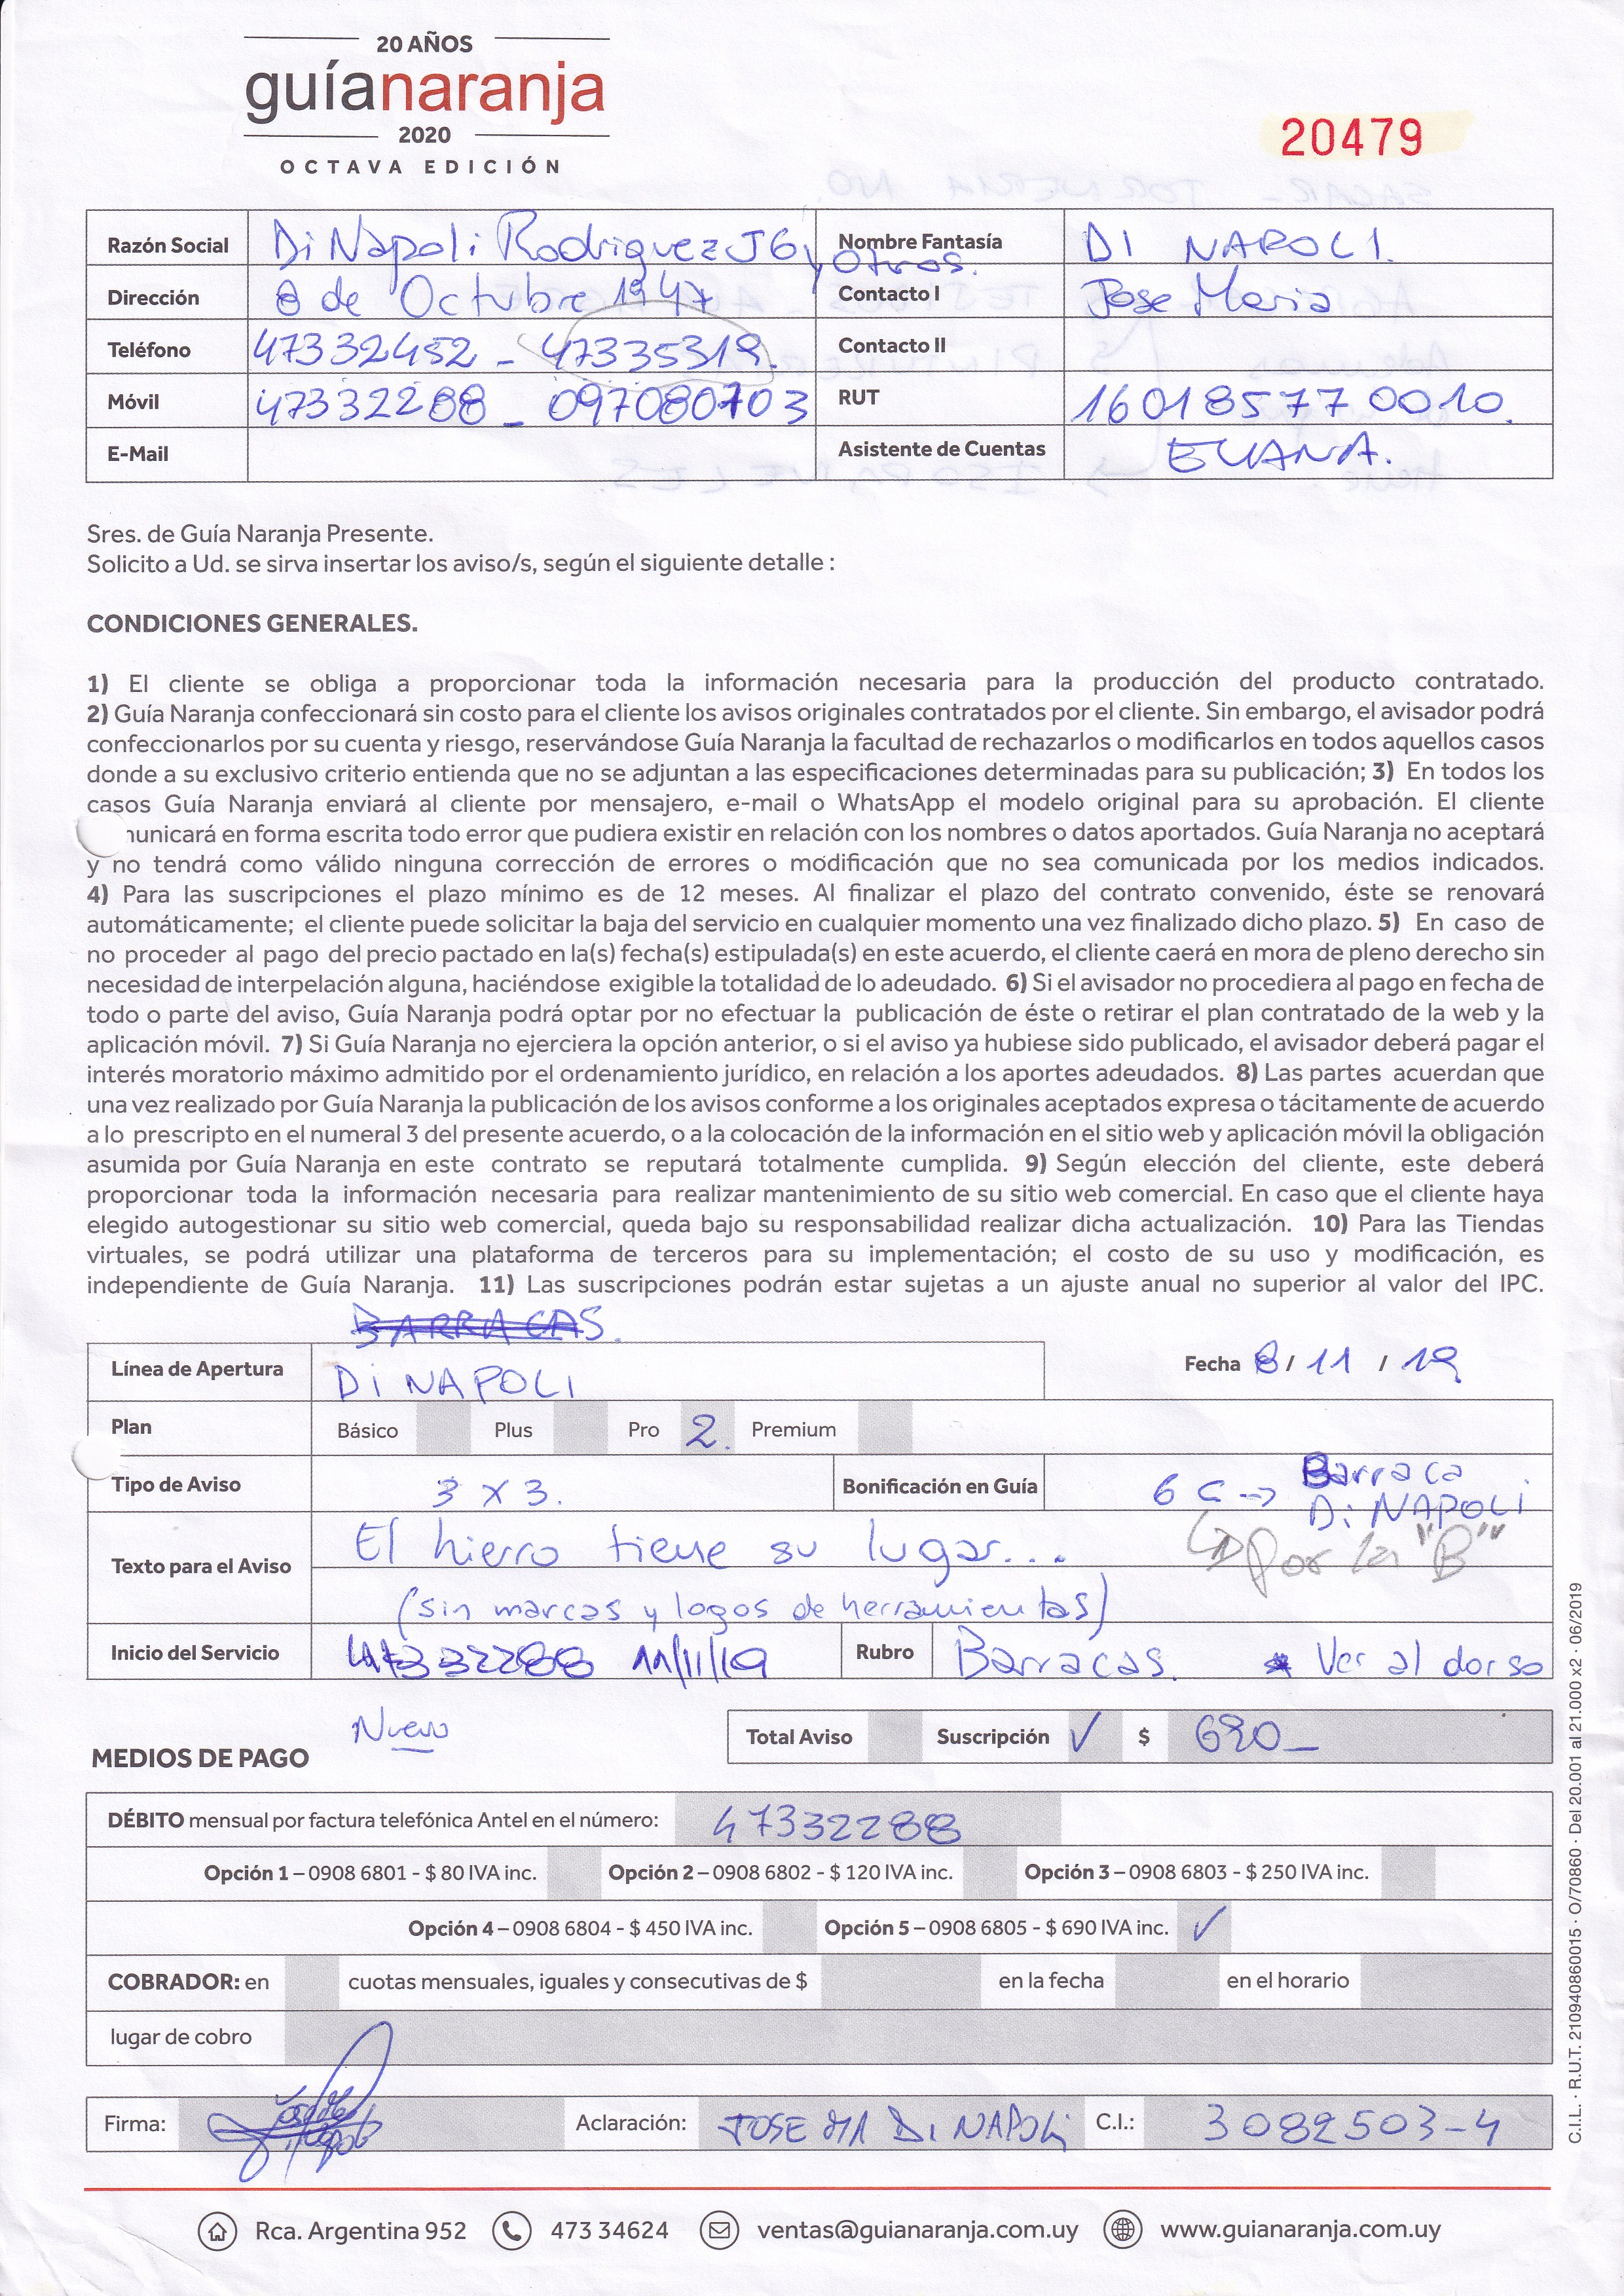 20 AÑOS
guíanaranja
2020
OCTAVA EDICIÓN
20479
Razón Social Di Napoli Rodriguez J G y Otros. Nombre Fantasía DI NAPOLI.
Dirección 8 de Octubre 1947 Contacto I Jose Maria
Teléfono 47332452 - 47335319. Contacto II
Móvil 47332288 - 097080703 RUT 160185770010.
E-Mail Asistente de Cuentas
Sres. de Guía Naranja Presente.
Solicito a Ud. se sirva insertar los aviso/s, según el siguiente detalle :
CONDICIONES GENERALES.
1) El cliente se obliga a proporcionar toda la información necesaria para la producción del producto contratado.
2) Guía Naranja confeccionará sin costo para el cliente los avisos originales contratados por el cliente. Sin embargo, el avisador podrá
confeccionarlos por su cuenta y riesgo, reservándose Guía Naranja la facultad de rechazarlos o modificarlos en todos aquellos casos
donde a su exclusivo criterio entienda que no se adjuntan a las especificaciones determinadas para su publicación; 3) En todos los
casos Guía Naranja enviará al cliente por mensajero, e-mail o WhatsApp el modelo original para su aprobación. El cliente
municará en forma escrita todo error que pudiera existir en relación con los nombres o datos aportados. Guía Naranja no aceptará
y no tendrá como válido ninguna corrección de errores o modificación que no sea comunicada por los medios indicados.
4) Para las suscripciones el plazo mínimo es de 12 meses. Al finalizar el plazo del contrato convenido, éste se renovará
automáticamente; el cliente puede solicitar la baja del servicio en cualquier momento una vez finalizado dicho plazo. 5) En caso de
no proceder al pago del precio pactado en la(s) fecha(s) estipulada(s) en este acuerdo, el cliente caerá en mora de pleno derecho sin
necesidad de interpelación alguna, haciéndose exigible la totalidad de lo adeudado. 6) Si el avisador no procediera al pago en fecha de
todo o parte del aviso, Guía Naranja podrá optar por no efectuar la publicación de éste o retirar el plan contratado de la web y la
aplicación móvil. 7) Si Guía Naranja no ejerciera la opción anterior, o si el aviso ya hubiese sido publicado, el avisador deberá pagar el
interés moratorio máximo admitido por el ordenamiento jurídico, en relación a los aportes adeudados. 8) Las partes acuerdan que
una vez realizado por Guía Naranja la publicación de los avisos conforme a los originales aceptados expresa o tácitamente de acuerdo
a lo prescripto en el numeral 3 del presente acuerdo, o a la colocación de la información en el sitio web y aplicación móvil la obligación
asumida por Guía Naranja en este contrato se reputará totalmente cumplida. 9) Según elección del cliente, este deberá
proporcionar toda la información necesaria para realizar mantenimiento de su sitio web comercial. En caso que el cliente haya
elegido autogestionar su sitio web comercial, queda bajo su responsabilidad realizar dicha actualización. 10) Para las Tiendas
virtuales, se podrá utilizar una plataforma de terceros para su implementación; el costo de su uso y modificación, es
independiente de Guía Naranja. 11) Las suscripciones podrán estar sujetas a un ajuste anual no superior al valor del IPC.
BARRACAS.
Línea de Apertura DI NAPOLI Fecha 8/ 11 / 19
Plan Básico Plus Pro 2. Premium
Tipo de Aviso 3 x 3. Bonificación en Guía 6 C -> Barraca
Di NAPOLI
Por la "B"
Texto para el Aviso El hierro tiene su lugar...
(sin marcas y logos de herramientas)
Inicio del Servicio 47332288 11/11/19 Rubro Barracas. * Ver al dorso
Nuevo
Total Aviso Suscripción ✓ $ 690_
MEDIOS DE PAGO
DÉBITO mensual por factura telefónica Antel en el número: 47332288
Opción 1 – 0908 6801 - $ 80 IVA inc. Opción 2 – 0908 6802 - $ 120 IVA inc. Opción 3 – 0908 6803 - $ 250 IVA inc.
Opción 4 – 0908 6804 - $ 450 IVA inc. Opción 5 – 0908 6805 - $ 690 IVA inc. ✓
COBRADOR: en cuotas mensuales, iguales y consecutivas de $ en la fecha en el horario
lugar de cobro
Firma: Aclaración: JOSE MA DI NAPOLI C.I.: 3082503-4
Rca. Argentina 952 473 34624 ventas@guianaranja.com.uy www.guianaranja.com.uy
C.I.L. · R.U.T. 210940860015 · O/70860 · Del 20.001 al 21.000 x2 · 06/2019